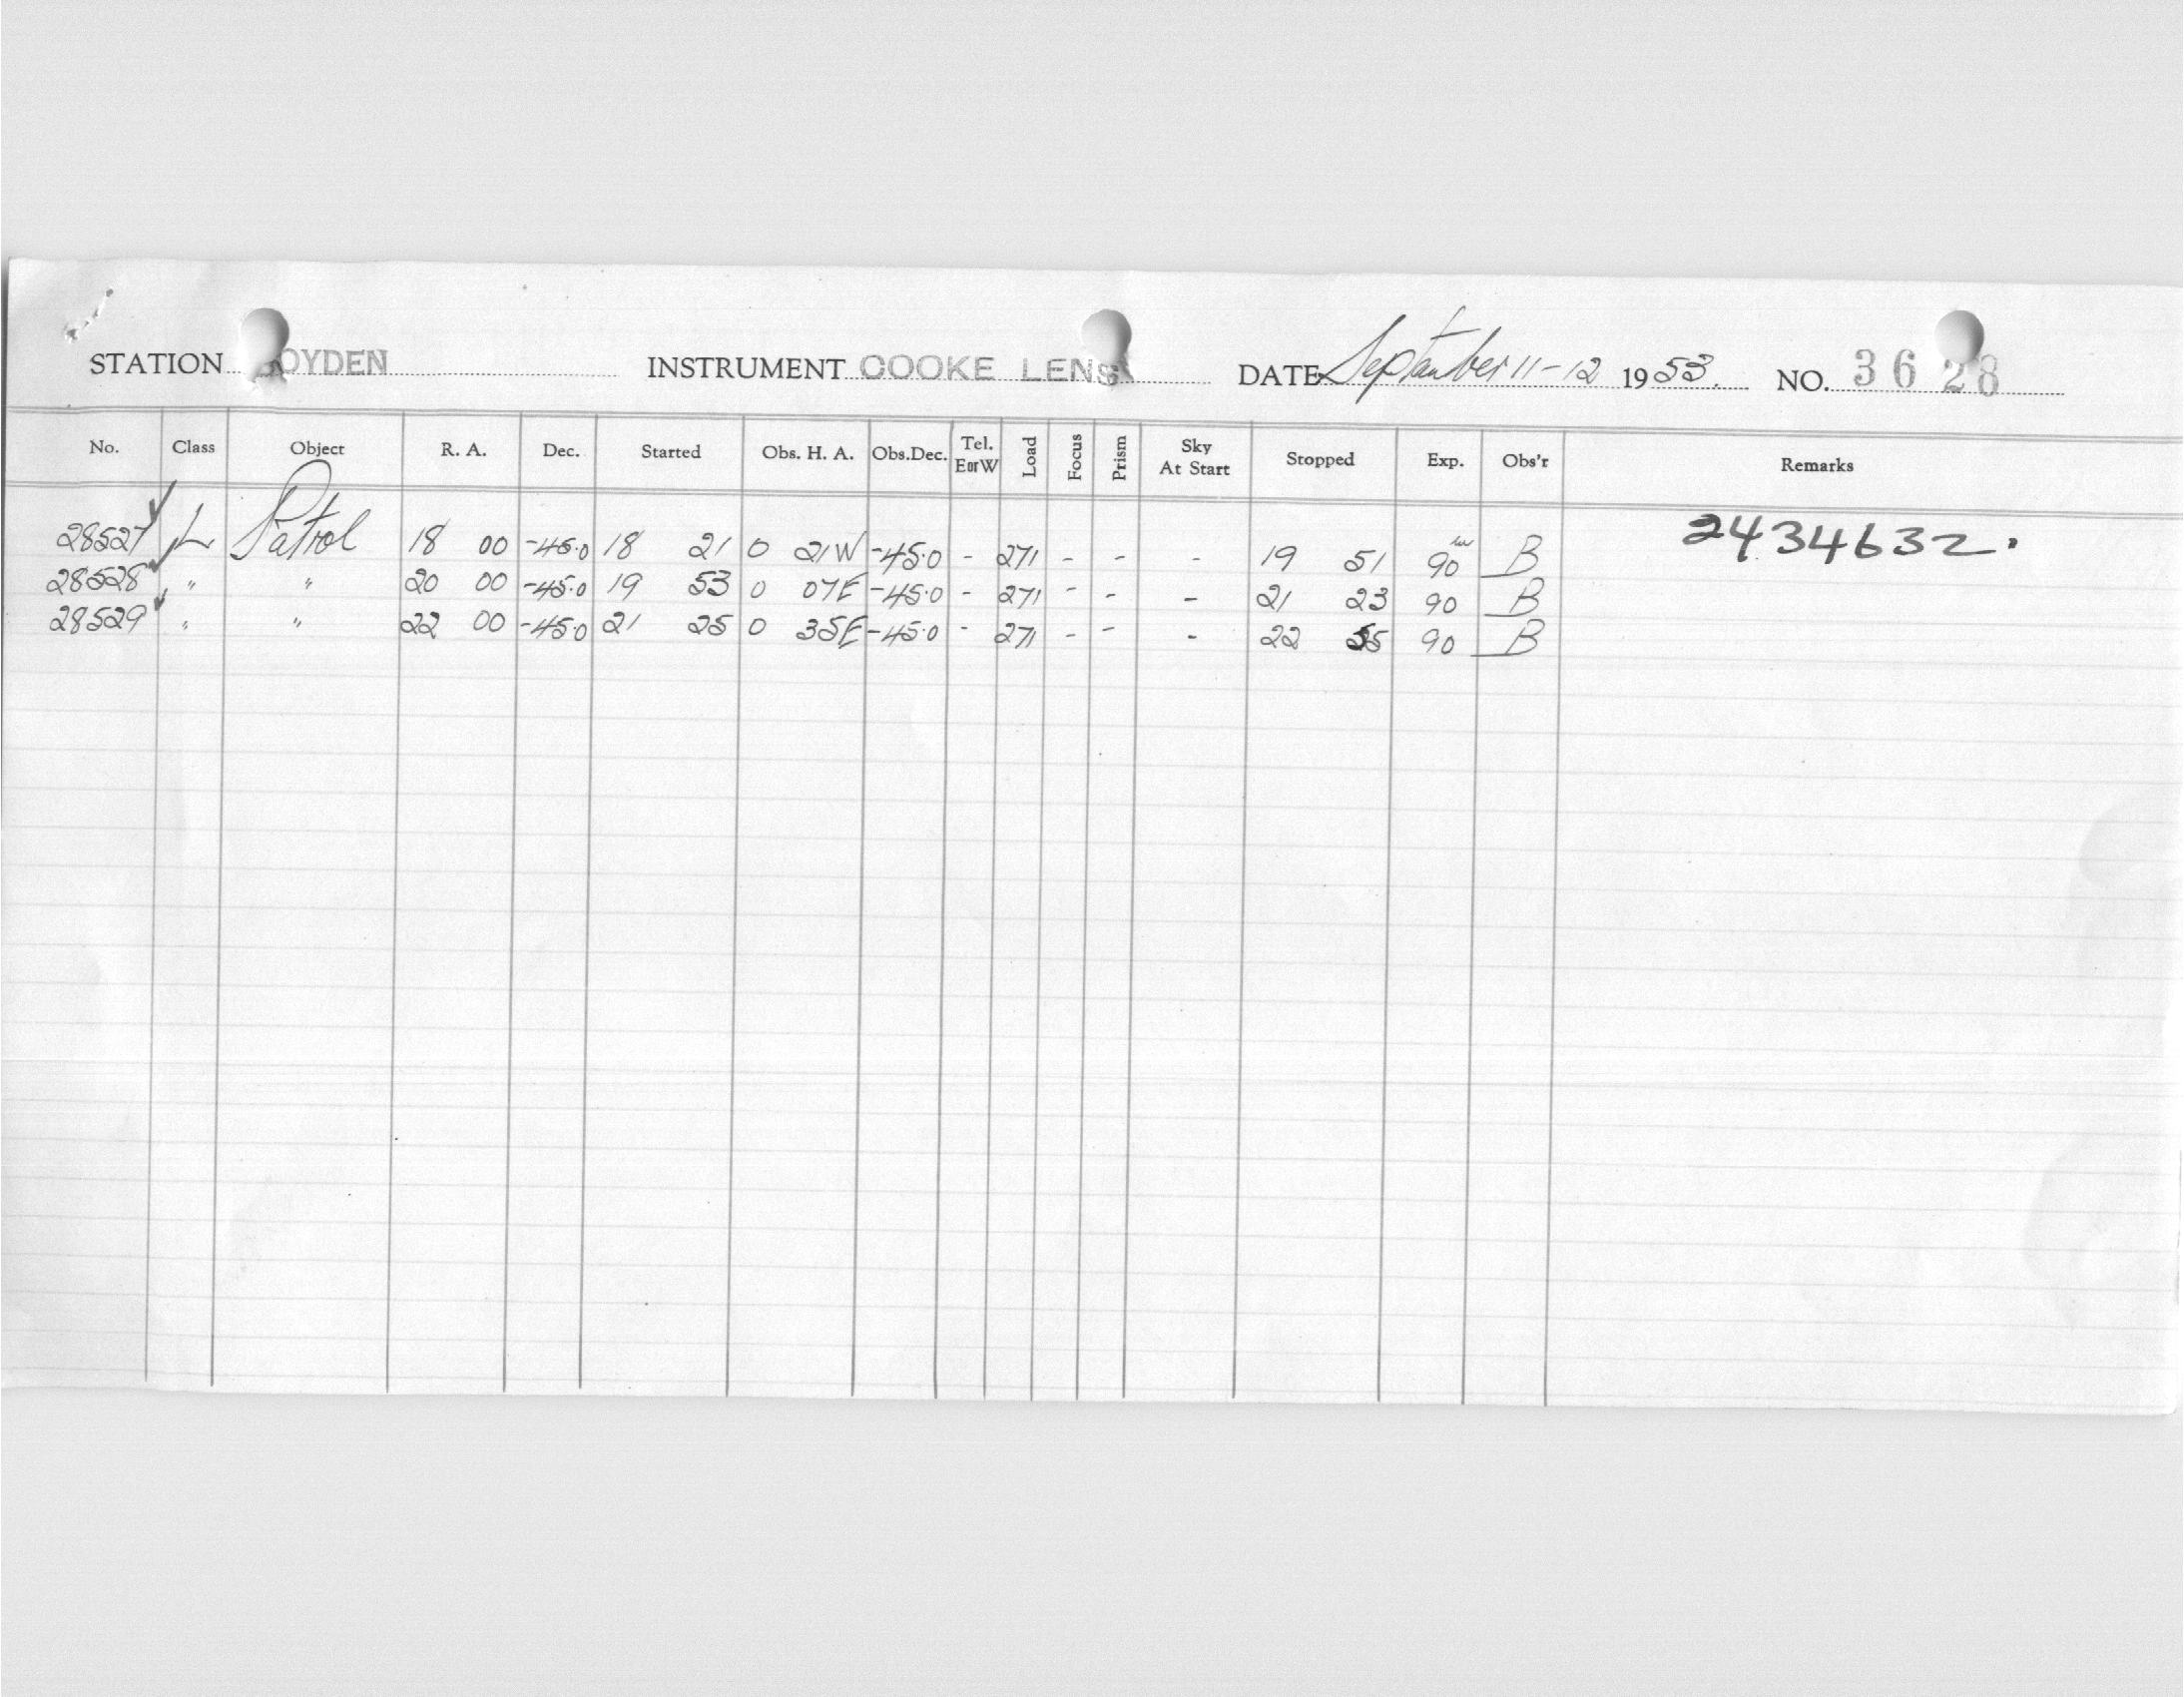 STATION BOYDEN INSTRUMENT COOKE LENS DATE September 11-12 1953. NO. 3628
No. Class Object R. A. Dec. Started Obs. H. A. Obs.Dec. Tel. EorW Load Focus Prism Sky At Start Stopped Exp. Obs'r Remarks
28527 ✓ L Patrol 18 00 -45.0 18 21 0 21W -45.0 - 271 - - - 19 51 90m B 2434632.
28528 ✓ " " 20 00 -45.0 19 53 0 07E -45.0 - 271 - - - 21 23 90 B
28529 ✓ " " 22 00 -45.0 21 25 0 35E -45.0 - 271 - - - 22 55 90 B